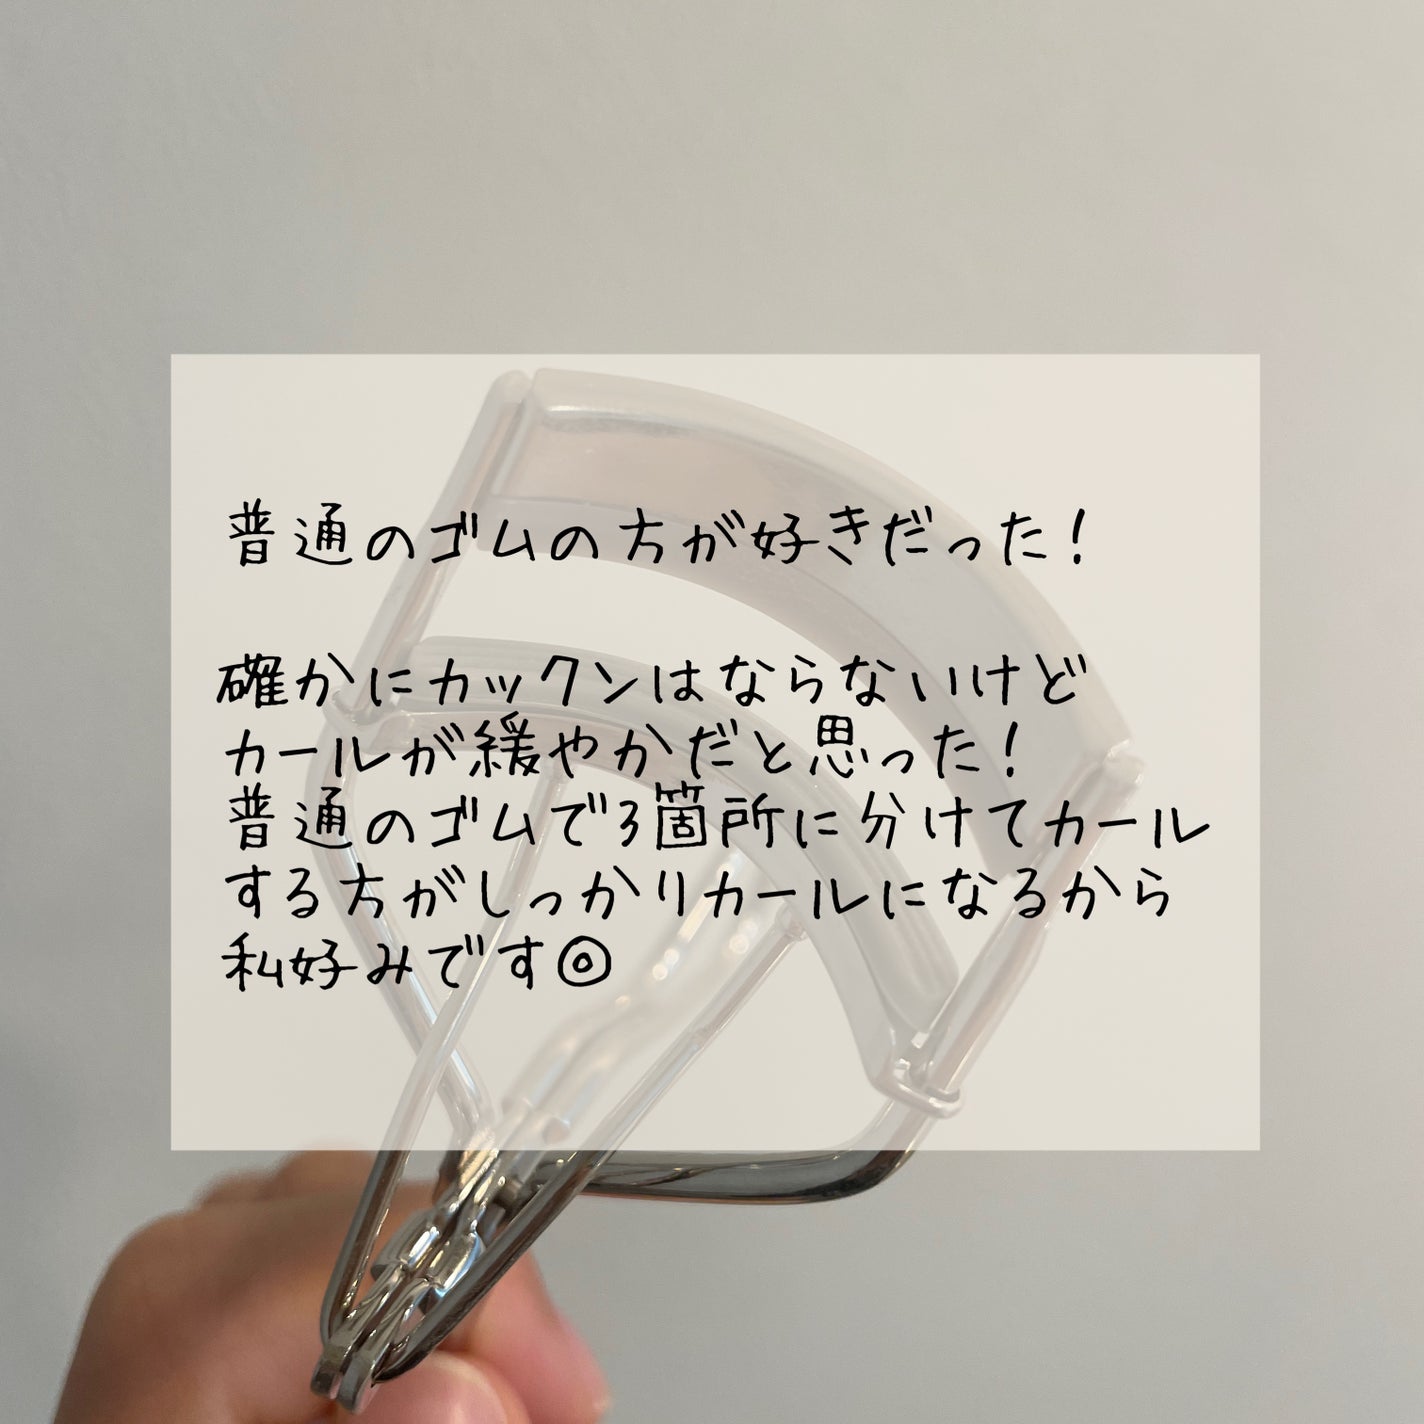 普通のゴムの方が好きだった！
確かにカックンはならないけど
カールが緩やかだと思った！
普通のゴムで3箇所に分けてカール
する方がしっかりカールになるから
私好みです◎